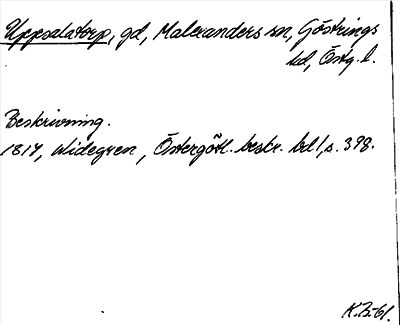 Uppsalatorp, gd, Malexanders sn, Göstrings
hd, Östg. l.
Beskrivning.
1817, Widegren, Östergötl. beskr. bd 1, s. 398.
K.B-61.